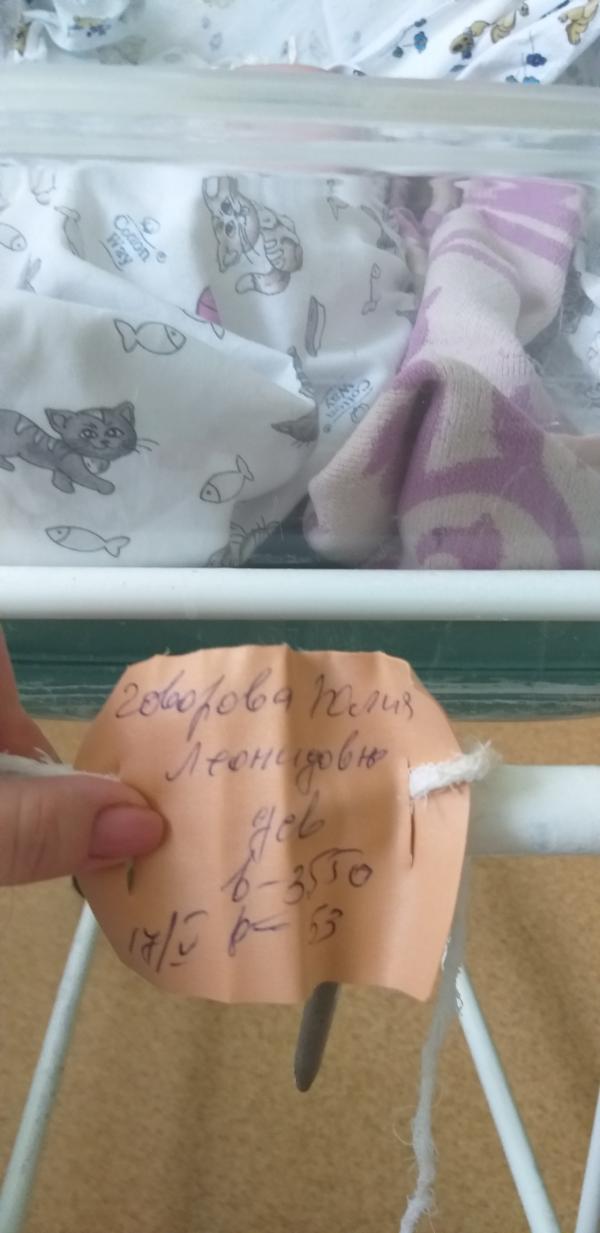 Cotton
Way
Cotton
Way
Говорова Юлия
Леонидовн
дев
в-3550
17/V р- 53